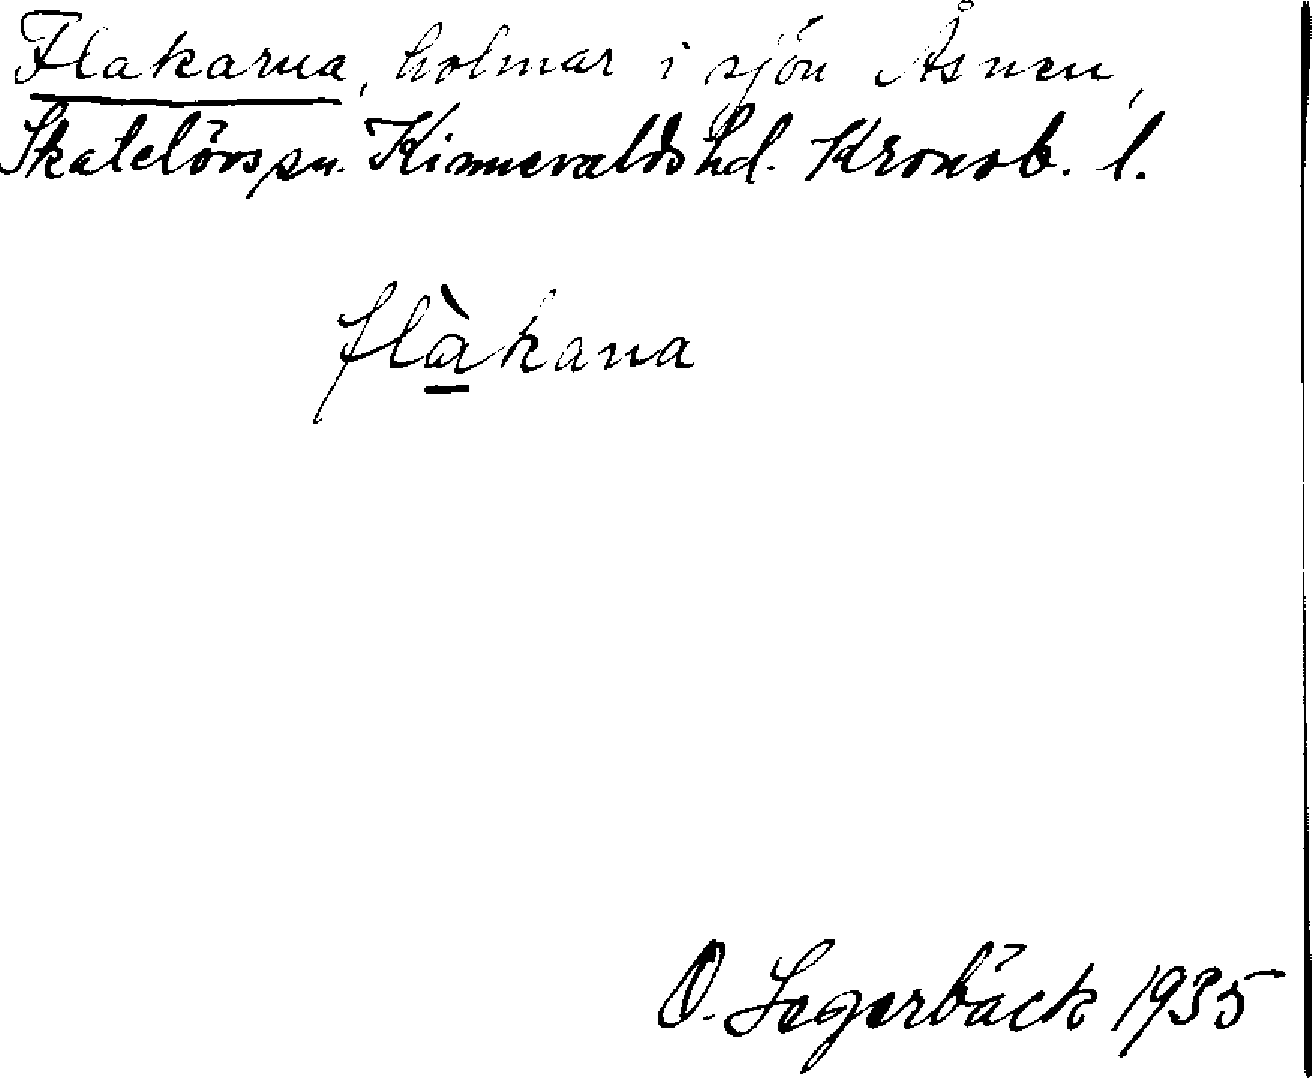 Flakarna, holmar i sjön Åsnen,
Skatelövs sn. Kinnevalds hd. Kronob. l.
flàkana
O. Segerbäck 1935